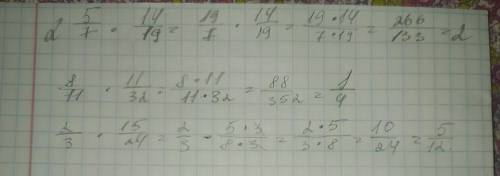 2 5/7 · 14/19 = 19/7 · 14/19 = 19·14/7·19 = 266/133 = 2
8/11 · 11/32 = 8·11/11·32 = 88/352 = 1/4
2/3 · 15/24 = 2/3 · 5·3/8·3 = 2·5/3·8 = 10/24 = 5/12